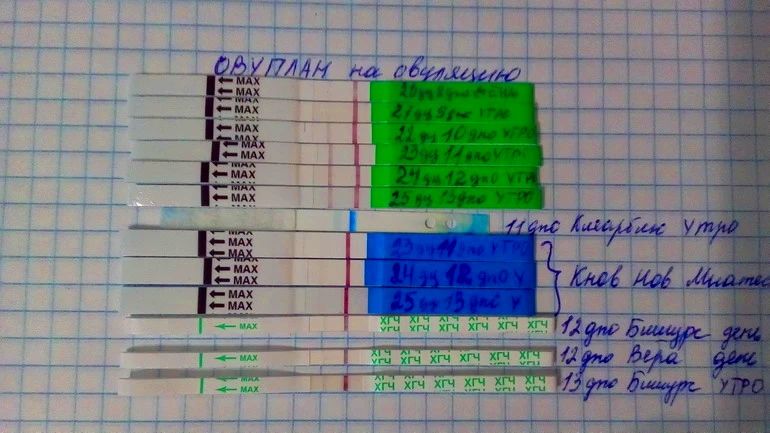 ОВУПЛАН на овуляцию
MAX
MAX 20 дц 8 дпо
MAX 21 дц 9 дпо УТРО
MAX 22 дц 10 дпо УТРО
MAX 23 дц 11 дпо УТРО
MAX 24 дц 12 дпо УТР
MAX 25 дц 13 дпо УТРО
MAX
11 дпо Клеарблю Утро
MAX 23 дц 11 дпо УТРО
MAX
MAX 24 дц 12 дпо У
MAX
MAX 25 дц 13 дпо У
MAX
Кнов Нов
MAX ХГЧ ХГЧ ХГЧ ХГЧ ХГЧ 12 дпо день
MAX ХГЧ ХГЧ ХГЧ ХГЧ ХГЧ 12 дпо Вера день
MAX ХГЧ ХГЧ ХГЧ ХГЧ ХГЧ 13 дпо УТРО